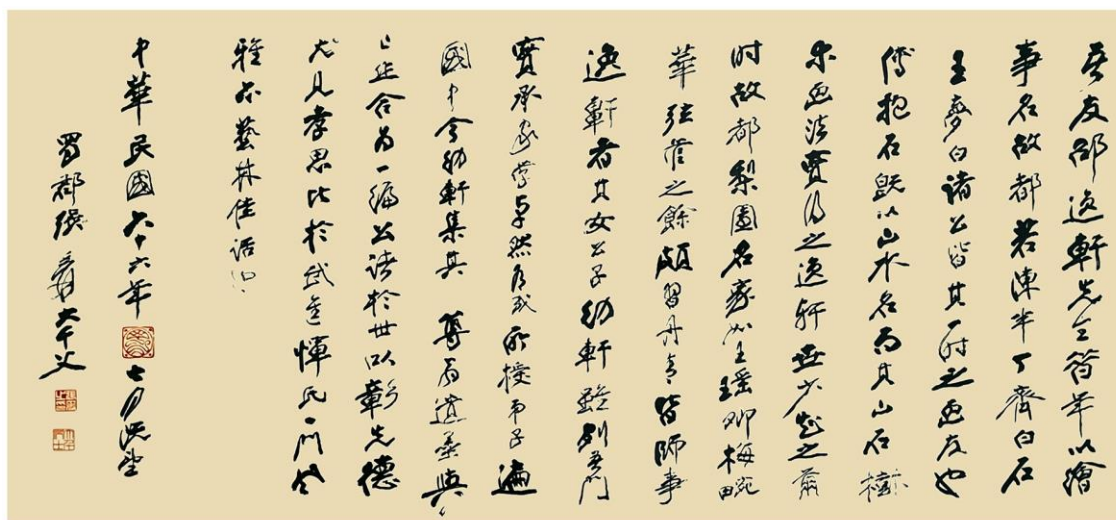 吾友邵逸軒先生筍年以繪
事名故都若陳半丁齊白石
王夢白諸公皆其一时之画友也
傅抱石既以山水名而其山石樹
木画法實得之逸軒世少知之當
时故都梨園名家如王瑶卿梅畹
華弦管之餘頗習丹青皆師事
逸軒者其女公子幼軒既列吾門
實承家學卓然有成所授弟子遍
國中今幼軒集其尊翁遺墨與
己画合为一编公诸於世以彰先德
尤見孝思比於武進惲氏一門風
雅亦藝林佳话也
中華民國六十六年七月既望
蜀郡張爰大千父